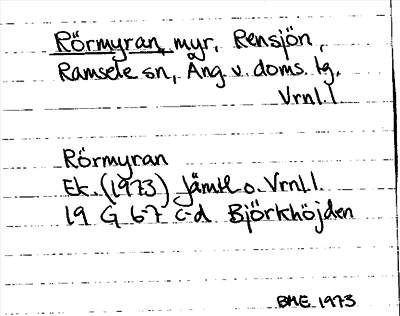 Rörmyran, myr, Rensjön,
Ramsele sn, Ång. v. doms. tg,
Vrnl.l
Rörmyran
Ek. (1973) Jämtl o. Vrnl.l.
19 G 6-7 c-d Björkhöjden
BME 1973